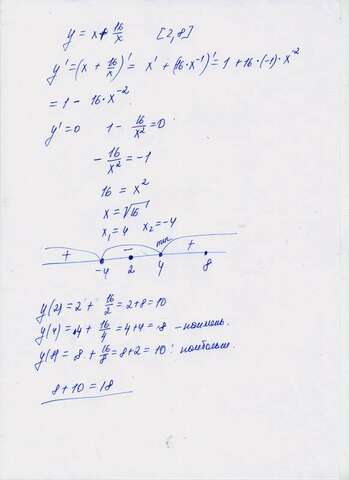 y = x + 16/x [2,8]
y' = (x + 16/x)' = x' + (16·x⁻¹)' = 1 + 16·(-1)·x⁻²
= 1 - 16·x⁻².
y' = 0 1 - 16/x² = 0
- 16/x² = -1
16 = x²
x = √16
x₁ = 4 x₂ = -4
+ - min +
-4 2 4 8
y(2) = 2 + 16/2 = 2+8 = 10
y(4) = 4 + 16/4 = 4+4 = 8 - наимень.
y(8) = 8 + 16/8 = 8+2 = 10 : наибольш.
8+10 = 18